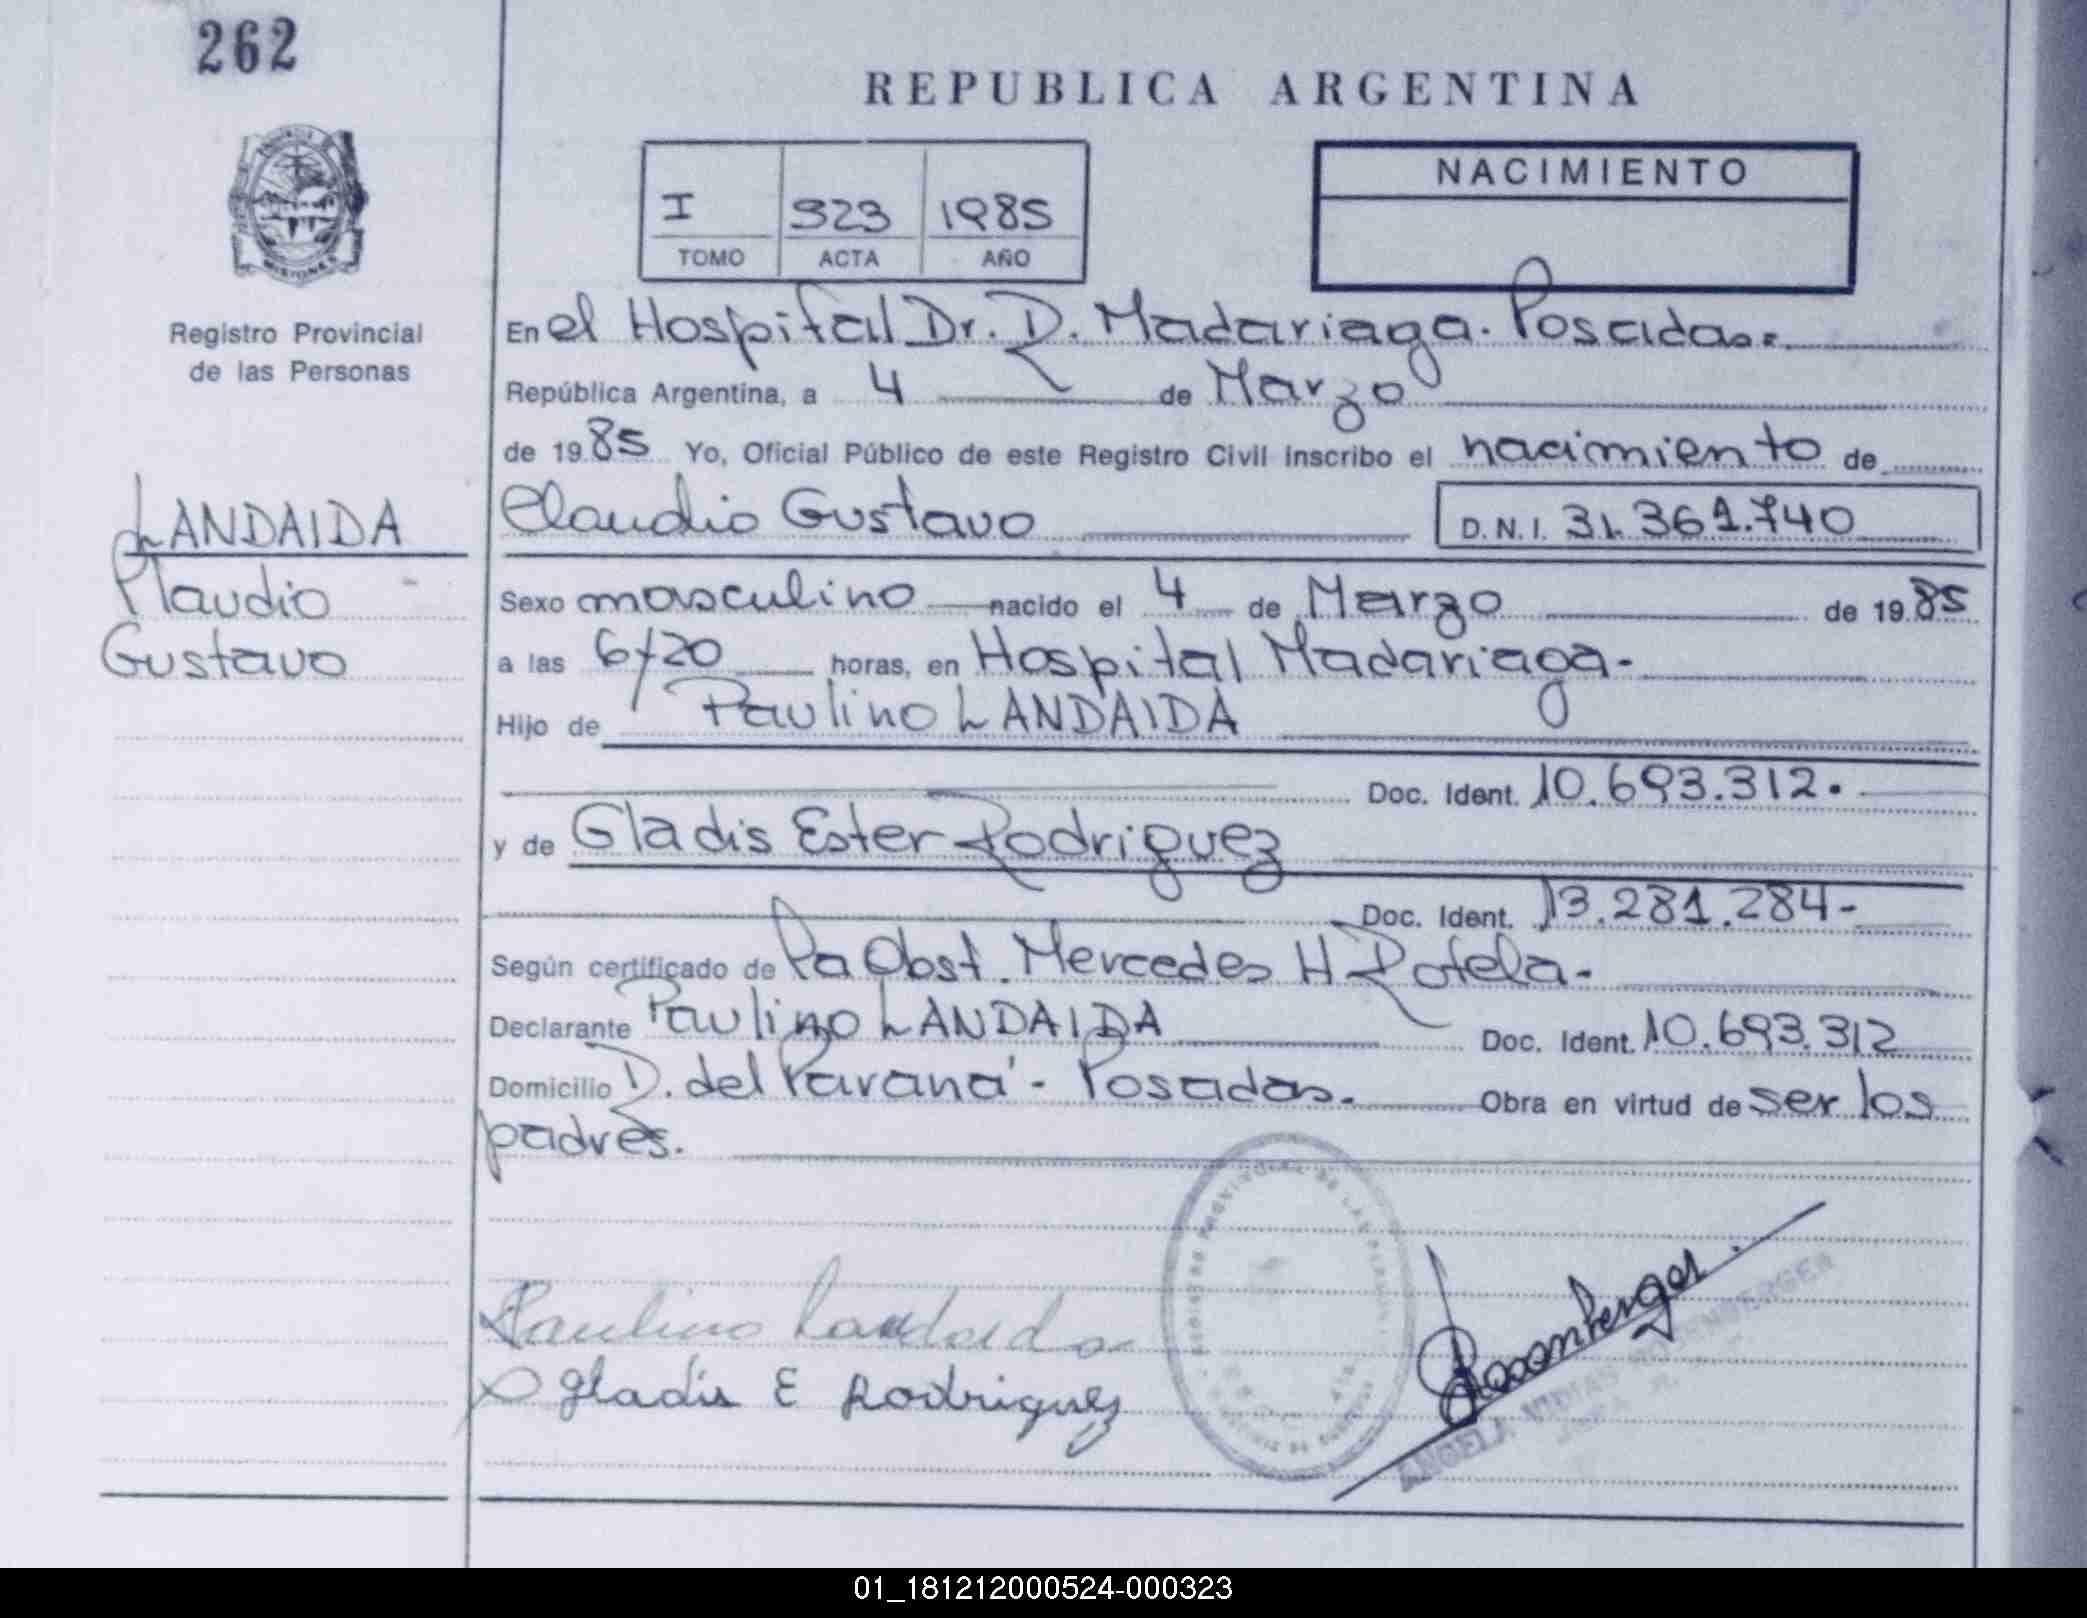 262
REPUBLICA ARGENTINA
I 323 1985
TOMO ACTA AÑO
NACIMIENTO
MISIONES
Registro Provincial
de las Personas
LANDAIDA
Claudio
Gustavo
En el Hospital Dr. R. Madariaga. Posadas.
República Argentina, a 4 de Marzo
de 1985 Yo, Oficial Público de este Registro Civil inscribo el nacimiento de
Claudio Gustavo D. N. I. 31.361.740
Sexo masculino nacido el 4 de Marzo de 1985
a las 6/20 horas, en Hospital Madariaga-
Hijo de Paulino LANDAIDA
Doc. Ident. 10.693.312.
y de Gladis Ester Rodriguez
Doc. Ident. 13.281.284-
Según certificado de La Obst. Mercedes H Rotela-
Declarante Paulino LANDAIDA Doc. Ident. 10.693.312
Domicilio R. del Paraná - Posadas. Obra en virtud de ser los
padres.
REGISTRO PROVINCIAL DE LAS PERSONAS
Paulino Landaida
Gladis E Rodriguez
Rosenberger
ANGELA ROSENBERGER
01_181212000524-000323